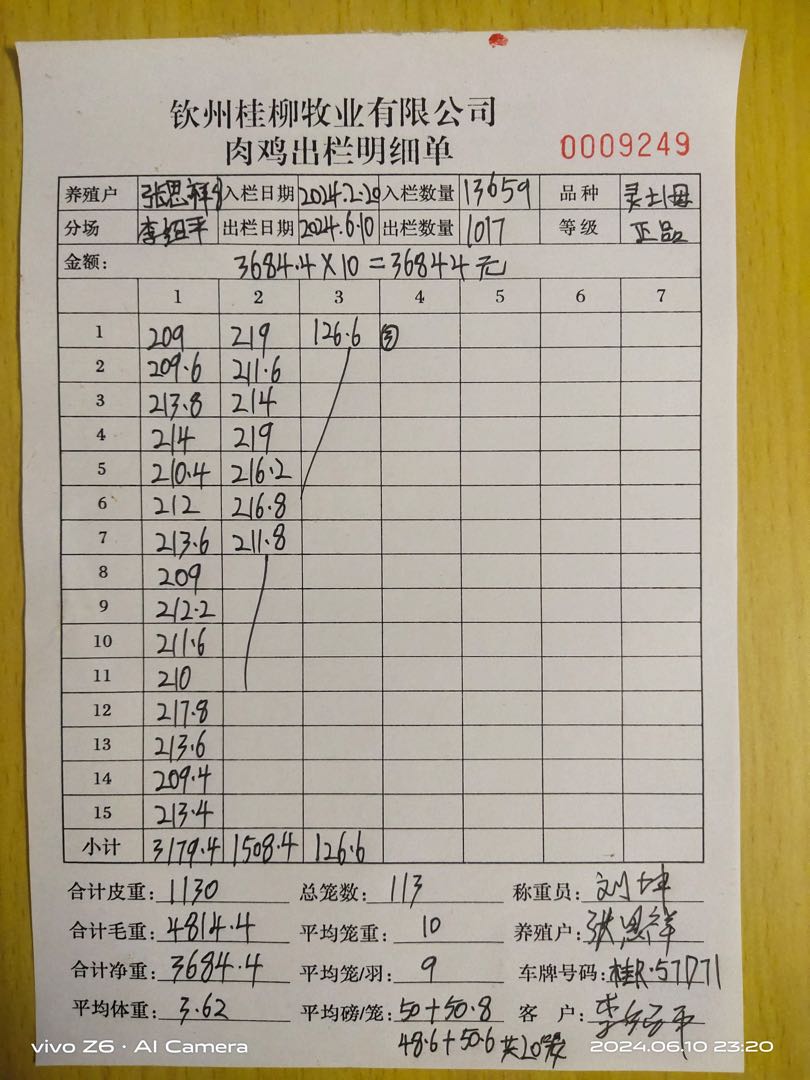 钦州桂柳牧业有限公司
肉鸡出栏明细单 0009249
养殖户 张恩祥 入栏日期 2024.2.20 入栏数量 13659 品种
分场 出栏日期 2024.6.10 出栏数量 1017 等级 正品
金额: 3684.4×10=36844元
1 2 3 4 5 6 7
1 209 219 126.6
2 209.6 211.6
3 213.8 214
4 214 219
5 210.4 216.2
6 212 216.8
7 213.6 211.8
8 209
9 212.2
10 211.6
11 210
12 217.8
13 213.6
14 209.4
15 213.4
小计 3179.4 1508.4 126.6
合计皮重: 1130 总笼数: 113 称重员: 刘坤
合计毛重: 4814.4 平均笼重: 10 养殖户: 张恩祥
合计净重: 3684.4 平均笼/羽: 9 车牌号码:
平均体重: 3.62 平均磅/笼: 50+50.8 客 户:
48.6+50.6
vivo Z6 · AI Camera 2024.06.10 23:20